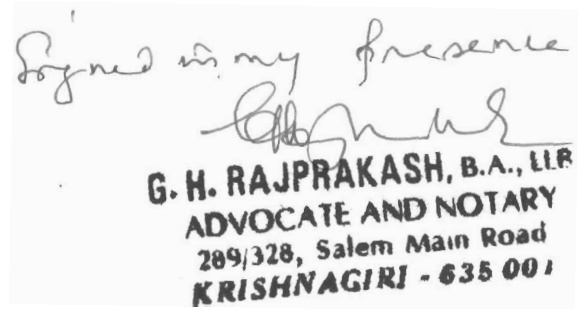 Signed in my presence
G. H. RAJPRAKASH, B.A., LLB
ADVOCATE AND NOTARY
289/328, Salem Main Road
KRISHNAGIRI - 635 001